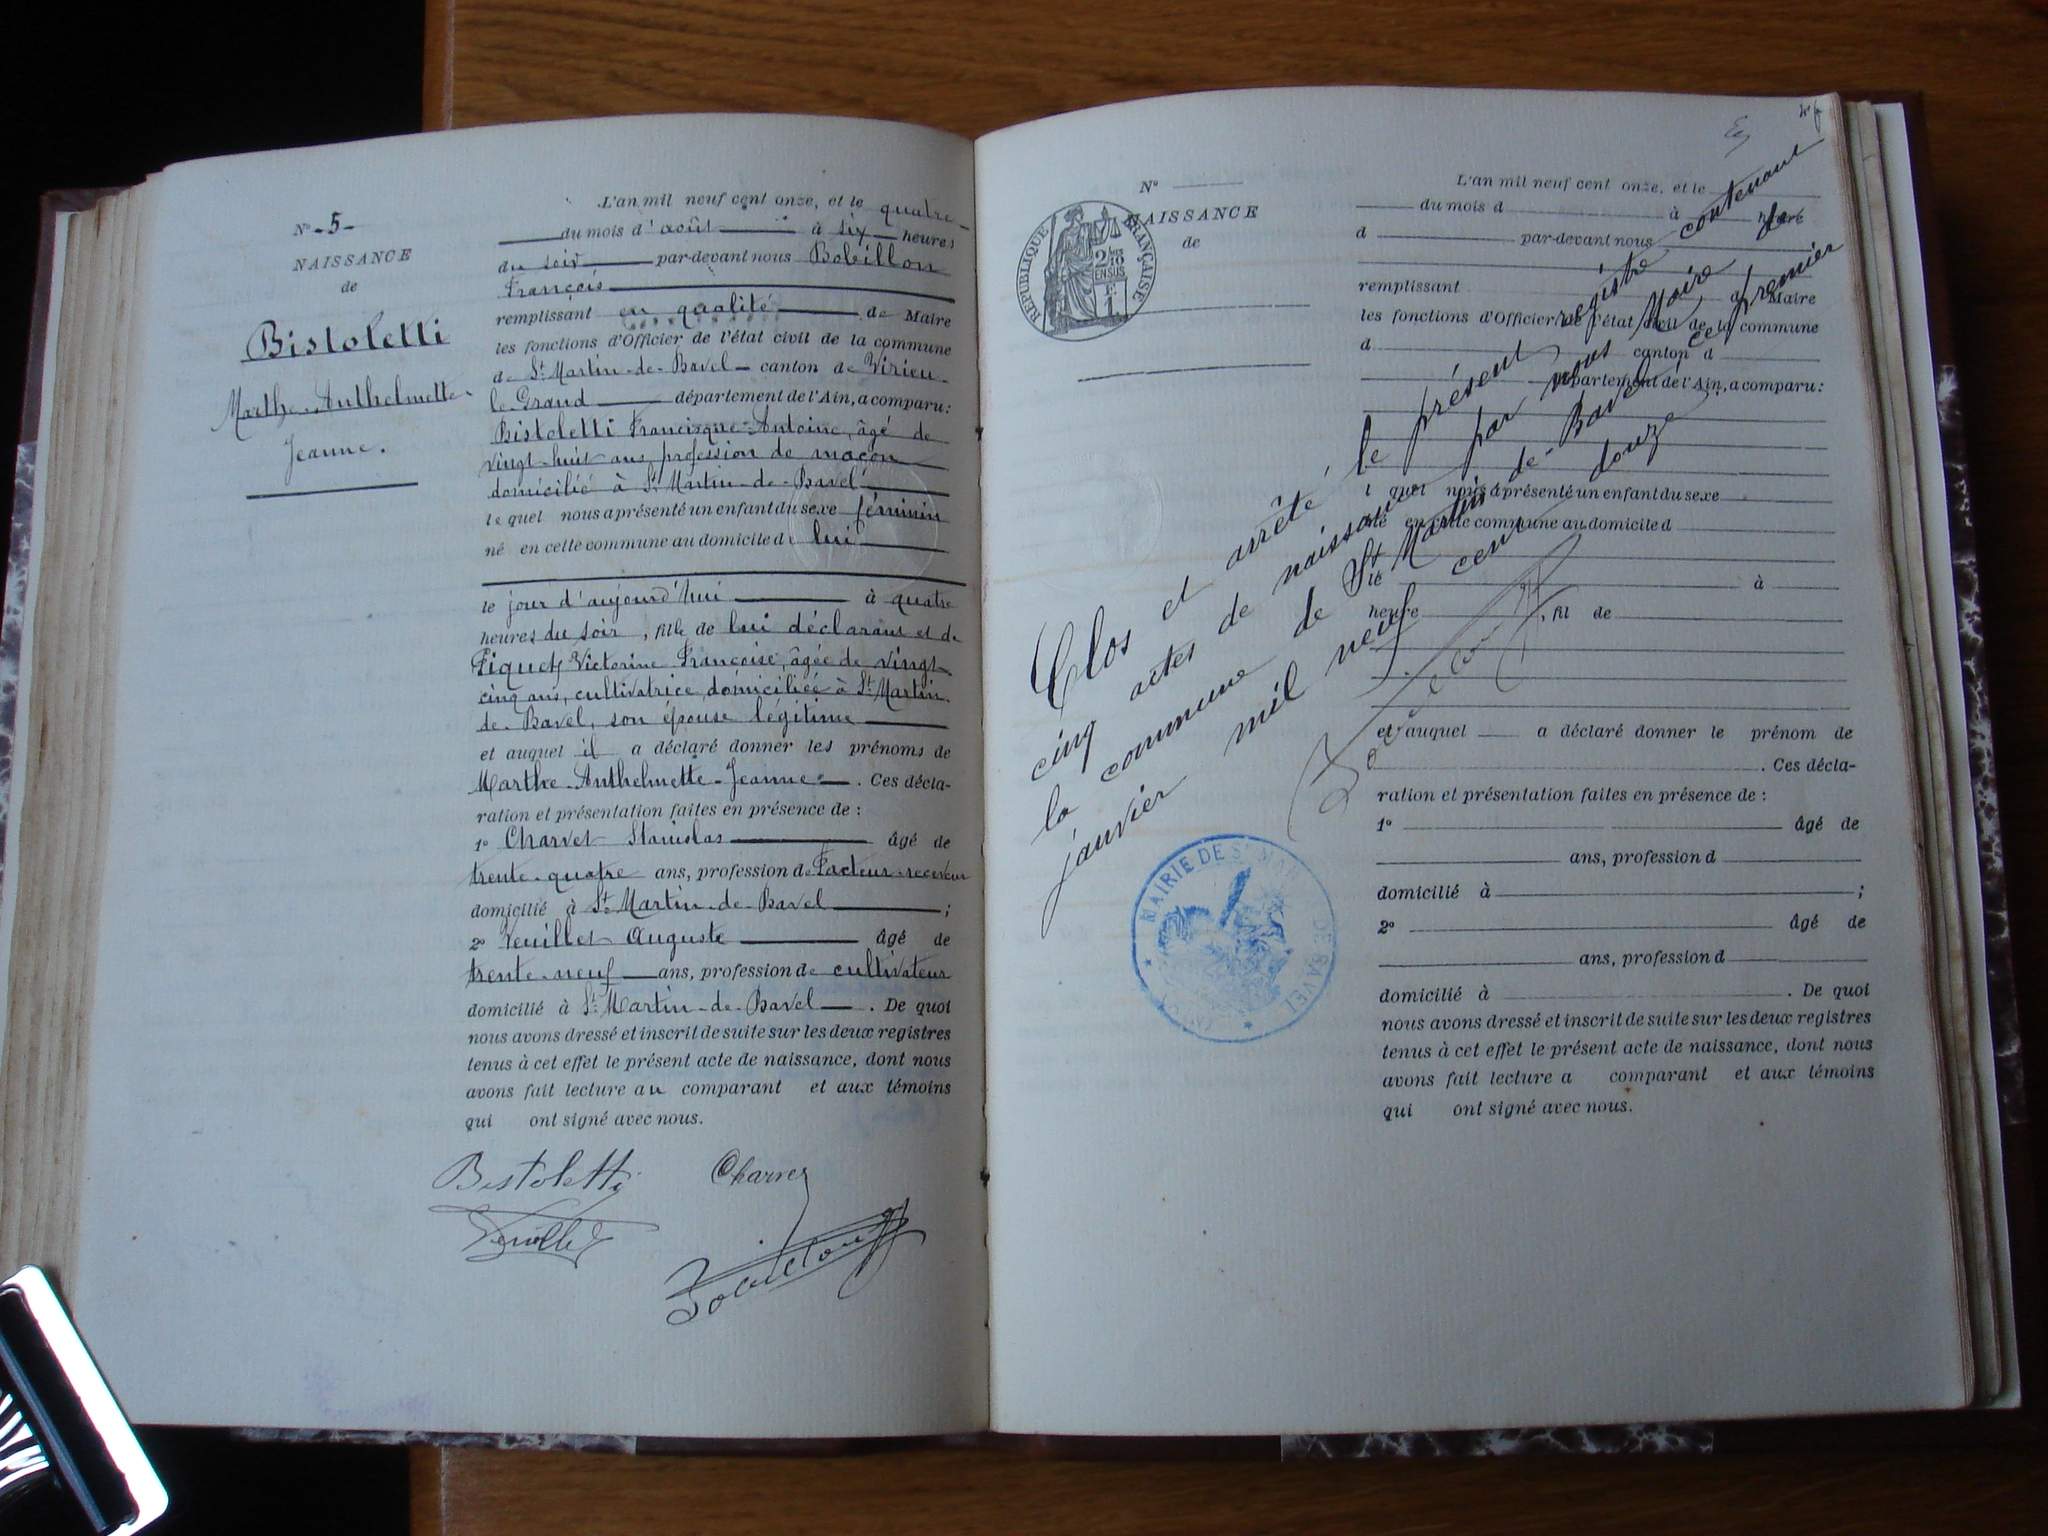 N° 5
NAISSANCE
de
Bistoletti
Marthe-Anthelmette-
Jeanne.
L'an mil neuf cent onze, et le quatre
du mois d'août à six heures
du soir par-devant nous Bobillon
François
remplissant en qualité de Maire
les fonctions d'Officier de l'état civil de la commune
de St Martin-de-Bavel - canton de Virieu-
le-Grand département de l'Ain, a comparu:
Bistoletti Francisque-Antoine, âgé de
vingt-huit ans, profession de maçon
domicilié à St Martin-de-Bavel
lequel nous a présenté un enfant du sexe féminin
né en cette commune au domicile de lui
le jour d'aujourd'hui à quatre
heures du soir, fille de lui déclarant et de
Piquet Victorine Françoise, âgée de vingt-
cinq ans, cultivatrice, domiciliée à St Martin-
de-Bavel, son épouse légitime
et auquel il a déclaré donner les prénoms de
Marthe-Anthelmette-Jeanne. Ces décla-
ration et présentation faites en présence de :
1° Charvet Stanislas âgé de
trente-quatre ans, profession de Facteur-receveur
domicilié à St Martin-de-Bavel ;
2° Veuillet Auguste âgé de
trente-neuf ans, profession de cultivateur
domicilié à St Martin-de-Bavel. De quoi
nous avons dressé et inscrit de suite sur les deux registres
tenus à cet effet le présent acte de naissance, dont nous
avons fait lecture au comparant et aux témoins
qui ont signé avec nous.
Bistoletti Charvet
N°
NAISSANCE
de
RÉPUBLIQUE FRANÇAISE
2/10 EN SUS
F. 1
L'an mil neuf cent onze, et le
du mois d à heure
d par-devant nous
remplissant d Maire
les fonctions d'Officier de l'état civil de la commune
d canton d
département de l'Ain, a comparu:
l quel nous a présenté un enfant du sexe
né en cette commune au domicile d
le à
heure , fil de
et auquel a déclaré donner le prénom de
. Ces décla-
ration et présentation faites en présence de :
1° âgé de
ans, profession d
domicilié à ;
2° âgé de
ans, profession d
domicilié à . De quoi
nous avons dressé et inscrit de suite sur les deux registres
tenus à cet effet le présent acte de naissance, dont nous
avons fait lecture a comparant et aux témoins
qui ont signé avec nous.
Clos et arrêté le présent registre contenant
cinq actes de naissance par nous Maire de
la commune de St Martin-de-Bavel ce premier
janvier mil neuf cent douze
MAIRIE DE ST MARTIN DE BAVEL